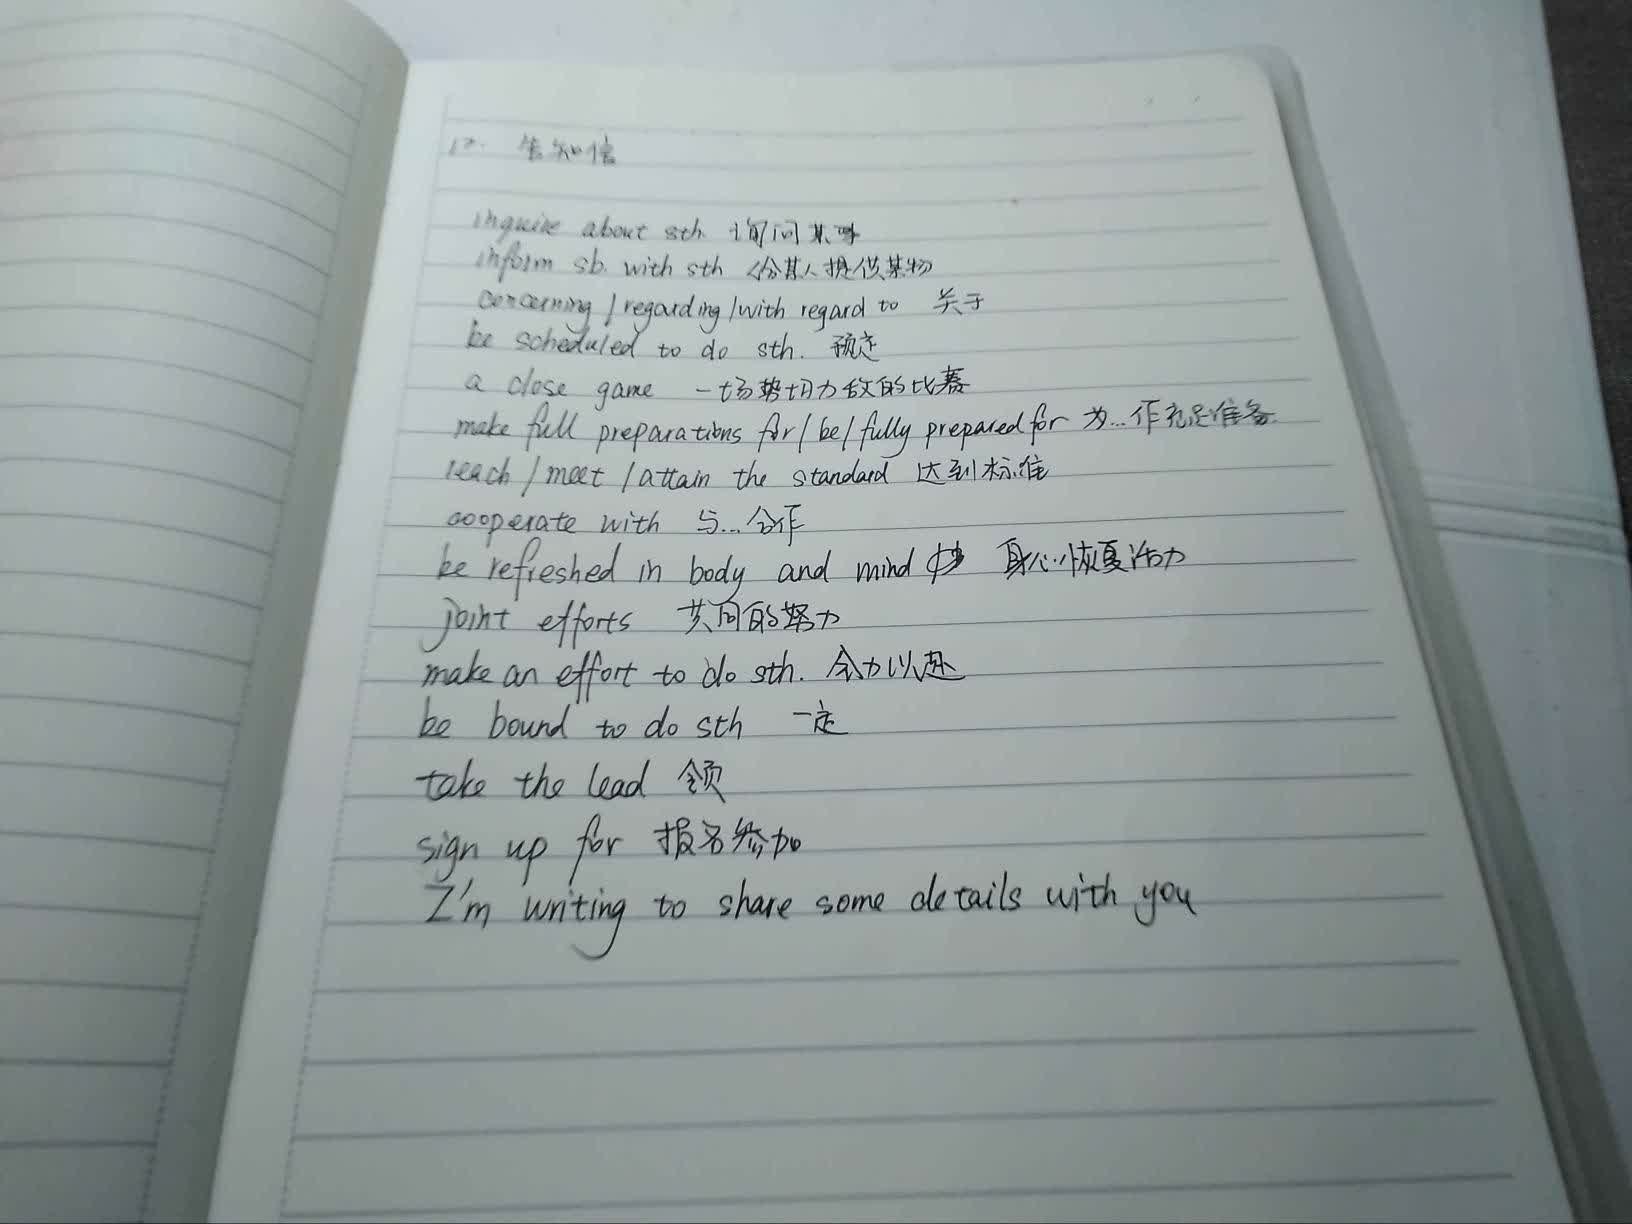 12. 告知信
inquire about sth. 询问某事
inform sb. with sth 给某人提供某物
concerning / regarding / with regard to 关于
be scheduled to do sth. 预定
a close game 一场势均力敌的比赛
make full preparations for / be / fully prepared for 为...作充足准备
reach / meet / attain the standard 达到标准
cooperate with 与...合作
be refreshed in body and mind 身心恢复活力
joint efforts 共同的努力
make an effort to do sth. 全力以赴
be bound to do sth 一定
take the lead 领
sign up for 报名参加
I'm writing to share some details with you